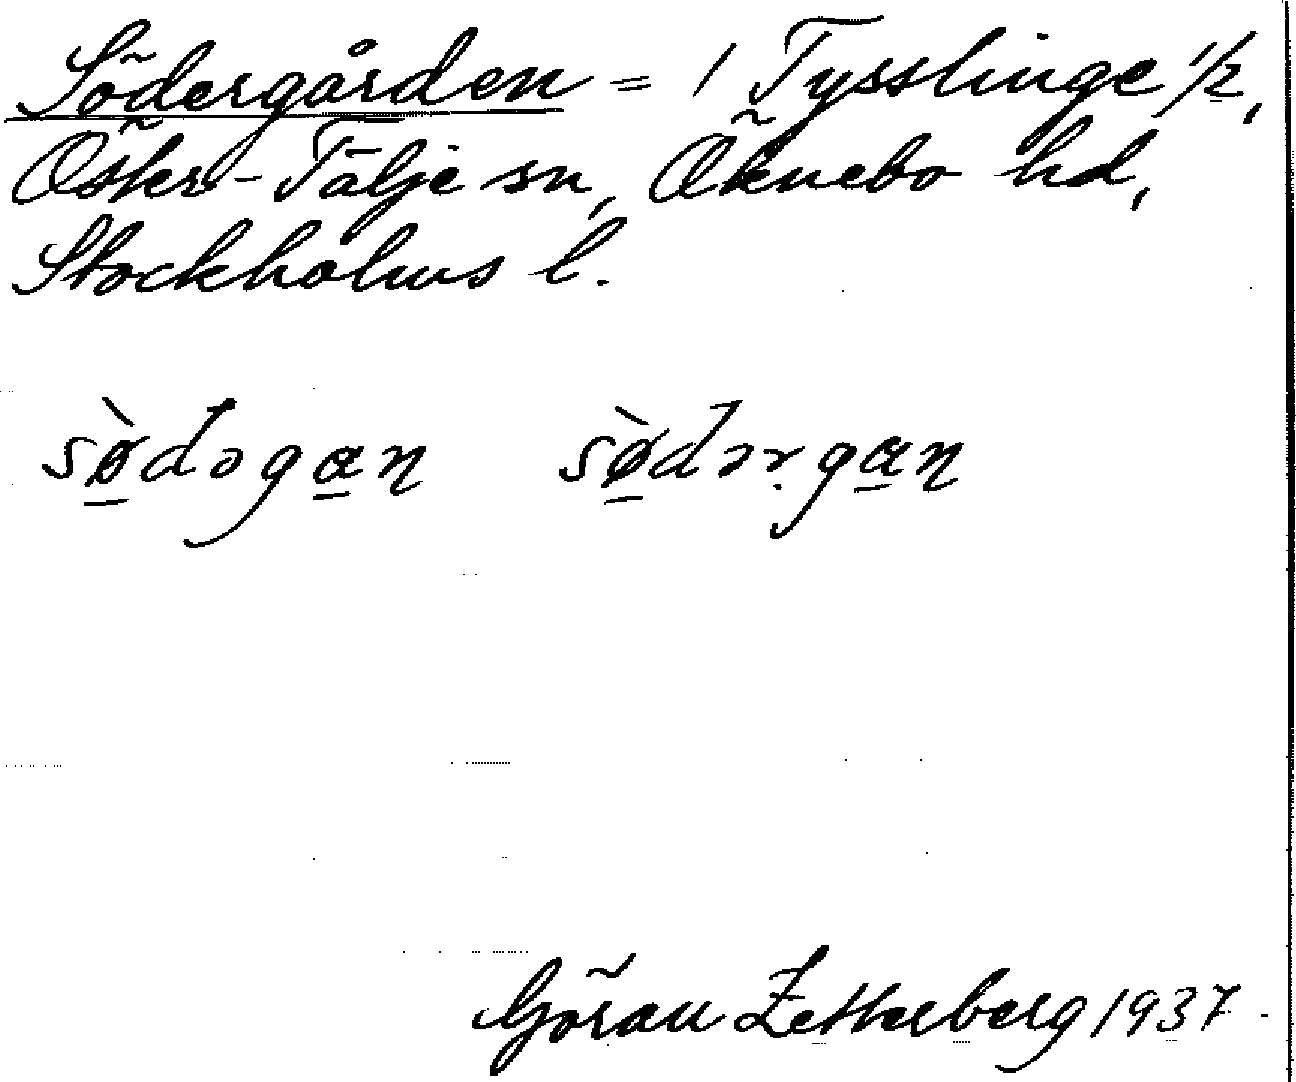 Södergården = 1 Tysslinge 1/2,
Öster-Tälje sn, Öknebo hd,
Stockholms l.
sø̀dəgɑɳ sø̀dər̥gɑɳ
Göran Zetterberg 1937